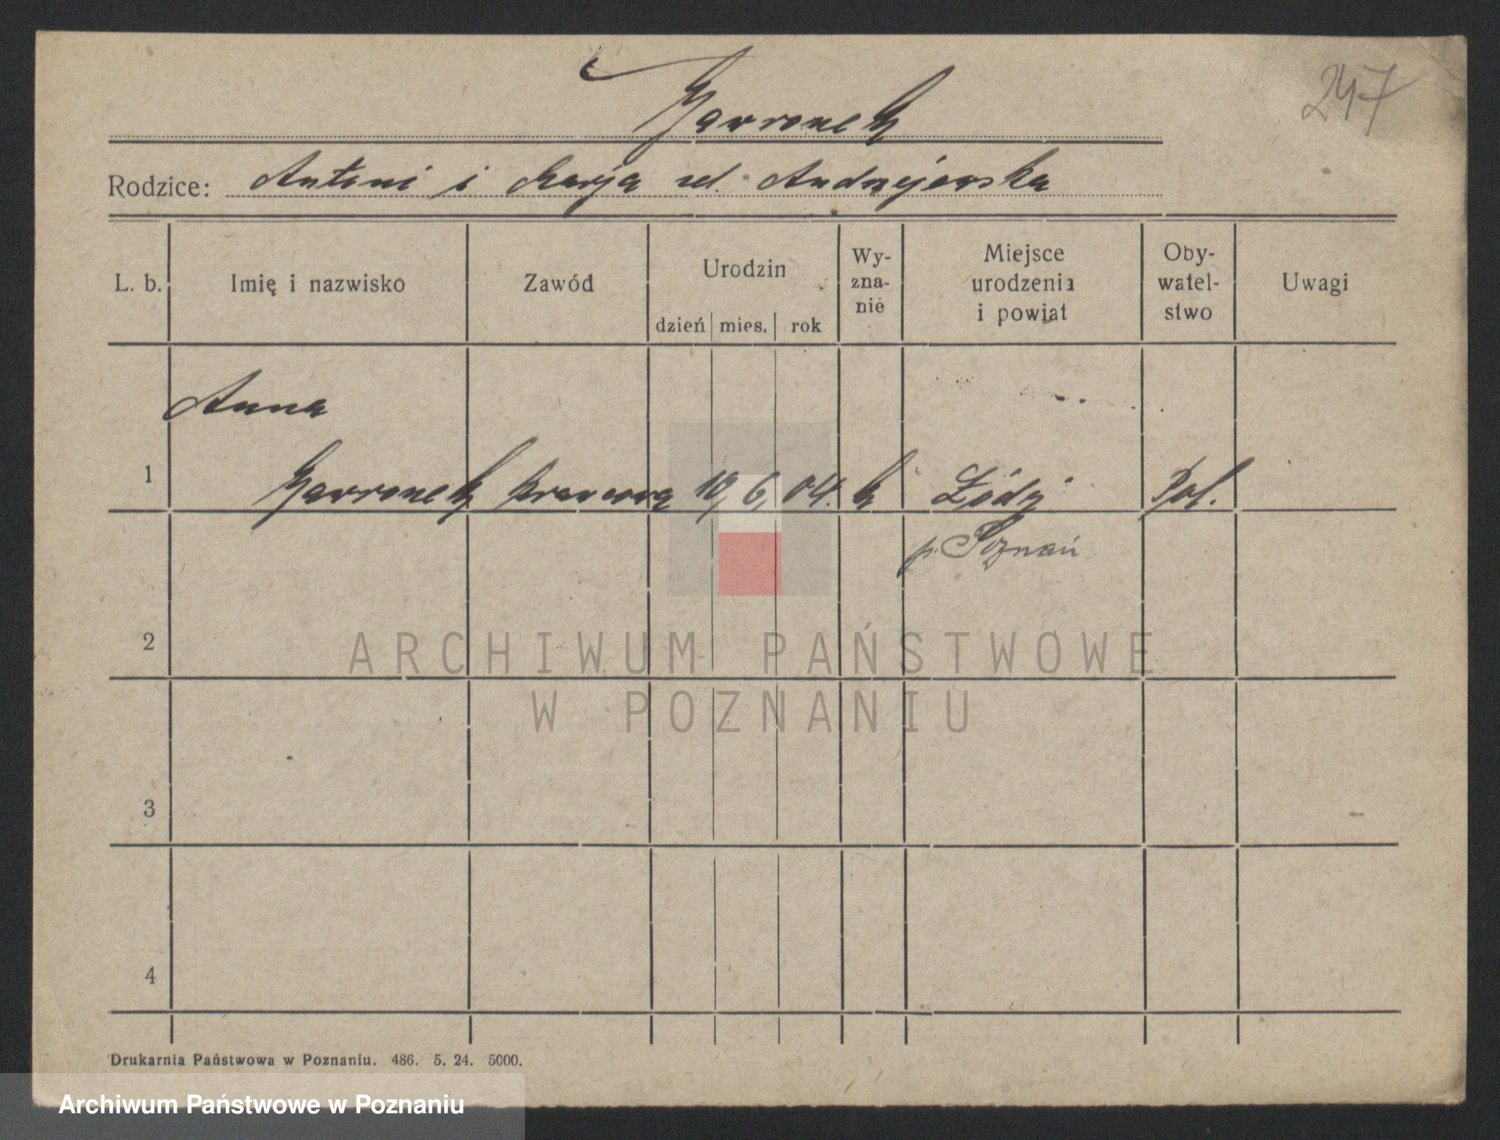 247
Gawronek
Rodzice: Antoni i Marja zd. Andrzejewska
L. b. Imię i nazwisko Zawód Urodzin dzień mies. rok Wy-zna-nie Miejsce urodzenia i powiat Oby-watel-stwo Uwagi
Anna
1 Gawronek krawcowa 12, 6, 04. k Łódź Pol.
p. Poznań
2
ARCHIWUM PAŃSTWOWE
W POZNANIU
3
4
Drukarnia Państwowa w Poznaniu. 486. 5. 24. 5000.
Archiwum Państwowe w Poznaniu